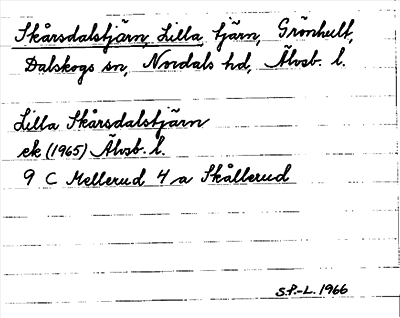 Skårsdalstjärn, Lilla, tjärn, Grönhult,
Dalskogs sn, Nordals hd, Älvsb. l.
Lilla Skårsdalstjärn
ek (1965) Älvsb. l.
9 C Mellerud 4 a Skållerud
S.P.-L. 1966